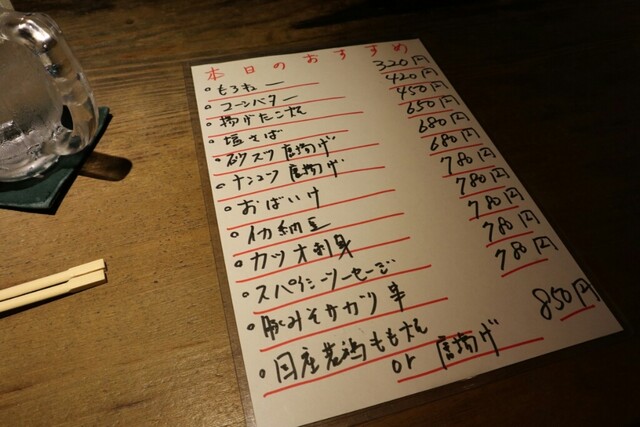 本日のおすすめ
もろきゅー 320円
コーンバター 420円
揚げたこ焼 450円
塩さば 650円
砂ズリ唐揚げ 680円
ナンコツ唐揚げ 680円
おばいけ 780円
イカ納豆 780円
カツオ刺身 780円
スパイシーソーセージ 780円
豚みそサガリ串 780円
国産若鶏もも焼 850円
or 唐揚げ